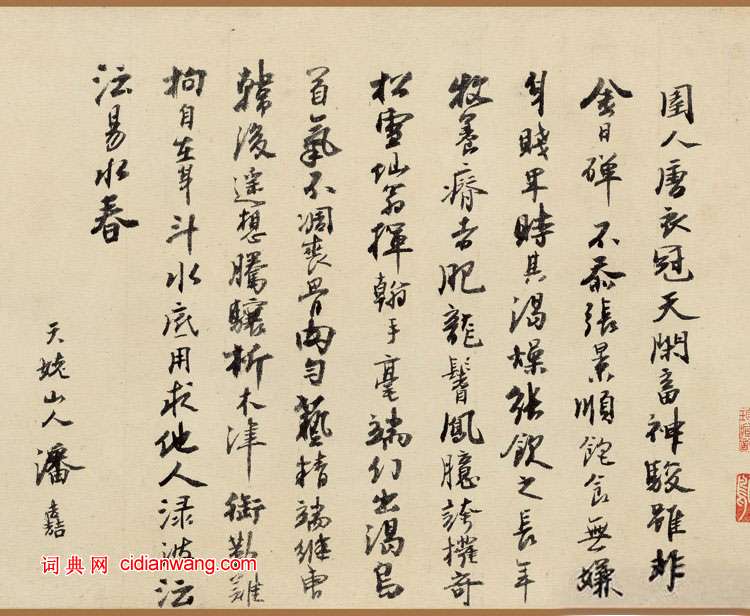 圉人唐衣冠天閑畜神駿雖非
金日磾不忝張景順飽食無嫌
身賤卑時其渴燥能飲之長年
牧養瘠者肥龍鬐鳳臆誇權奇
松雪仙翁揮翰手毫端幻出渴烏
首氣不凋喪骨肉勻藝精端継曹
韓後遥想騰驤析木津銜勒難
拘自在身斗水底用求他人渌波泛
泛易水春
天姥山人潘嘉
词典网 cidianwang.com